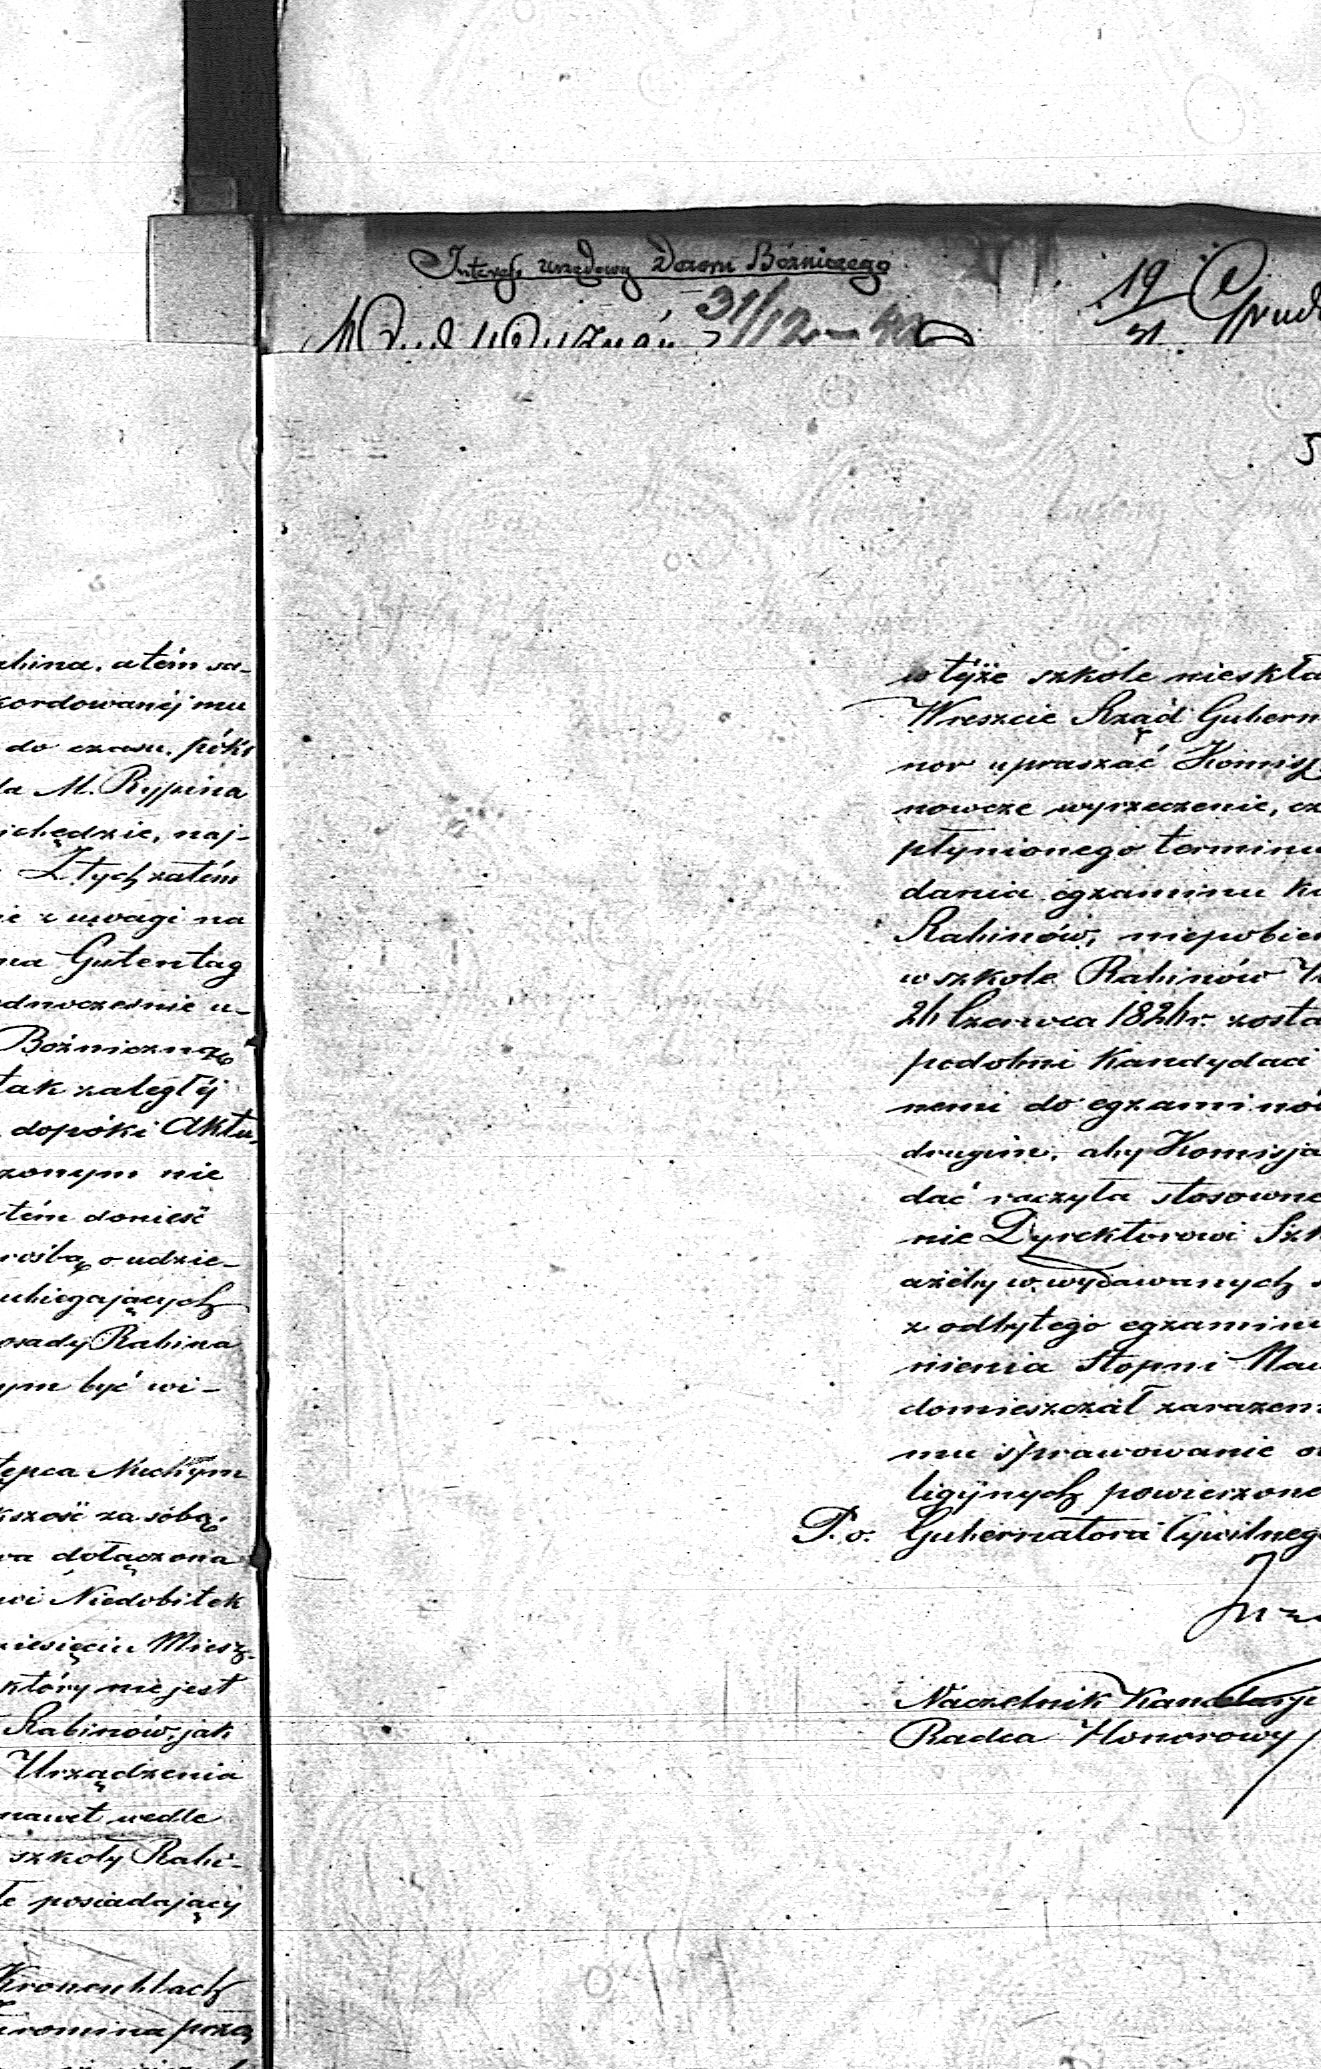 Interes urzędowy Dozoru Bóźniczego
31/12 – 42
19/31 Grud
5
abina, a tém sa-
kordowanéj mu
do czasu, póki
la M. Rypina
ichędzie, naj-
Z tych zatém
ie z uwagi na
na Gutentag
ednocześnie u-
Bożniczną
tak zaległéj
dopóki Aktu-
zonym nie
tém donieść
rośbą o udzie-
ubiegających
osady Rabina
ym być wi-
tępca Nuchym
kszość za sobą,
wa dołączona
wi Niedobitek
iesięciu Miesz-
który nie jest
Rabinów, jak
Urządzenia
nawet wedle
szkoły Rabi-
le posiadający
Kronenblach
uromina prze
w téjże szkole nieskła
Wreszcie Rząd Gubern
nor upraszać Komiss
nowcze wyrzeczenie, cz
płynionego terminu
dania egzaminu ka
Rabinów, niepobier
w szkole Rabinów
26 Czerwca 1826 r. zosta
podobni Kandydaci
nemi do egzaminów
drugie, aby Komisja
dać raczyła stosowne
nie Dyrektorowi Szk
ażeby w wydawanych
z odbytego egzaminu
nienia stopni Nau
domieszczał zarazem
mu sprawowanie o
ligijnych powierzone
P. o. Gubernatora Cywilneg
Naczelnik Kancelaryi
Radca Honorowy